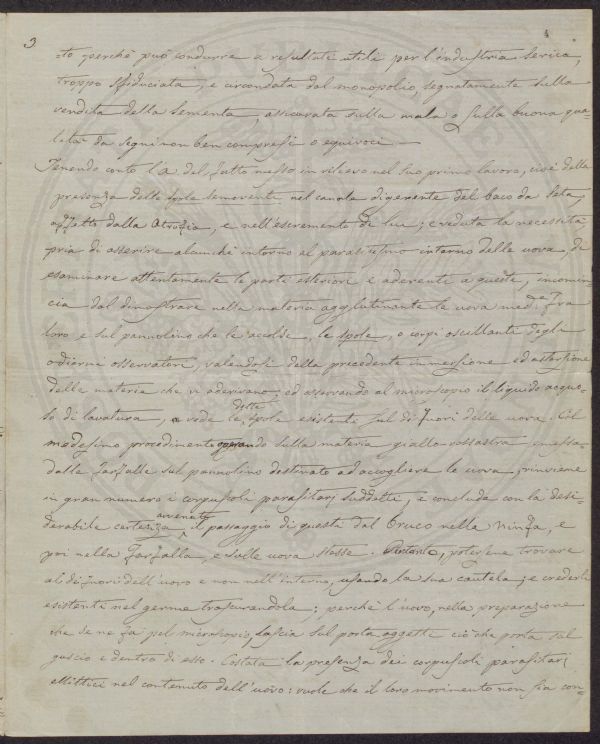 3
4
-to perchè può condurre a resultati utili per l'industria serica,
troppo sfiduciata, e circondata dal monopolio, segnatamente sulla
vendita della Sementa, assicurata sulla mala o sulla buona qua-
lità da segni non ben compresi o equivoci —
Tenendo conto l'A del fatto messo in rilievo nel suo primo lavoro, cioè della
presenza delle spole semoventi nel canale digerente del baco da seta,
affetto dalla Atrofia, e nell'escremento di lui; e veduta la necessità,
pria di asserire alcunchè intorno al parasitismo interno delle uova, di
esaminare attentamente le parti esteriori e aderenti a queste, incomin-
cia dal dimostrare nella materia agglutinante le uova med.e fra
loro e sul pannolino che le accolse, le spole, o corpi oscillanti degli
odierni osservatori, valendosi della precedente immersione ed astersione
delle materie che vi aderivano, ed osservando al microscopio il liquido acquo-
so di lavatura, e vede le dette spole esistenti sul di fuori delle uova. Col
medesimo procedimento operando sulla materia giallo-rossastra emessa
dalle farfalle sul pannolino destinato ad accogliere le uova, rinviene
in gran numero i corpuscoli parasitarj suddetti, e conclude con la desi-
derabile certezza avvenuto il passaggio di questi dal Bruco nella Ninfa, e
poi nella Farfalla, e sulle uova stesse. Pertanto, potersene trovare
al di fuori dell'uovo e non nell'interno, usando la sua cautela; e crederli
esistenti nel germe trascurandola; perchè l'uovo, nella preparazione
che se ne fa pel microscopio, lascia sul porta oggetti ciò che porta sul
guscio e dentro di esso. Costata la presenza dei corpuscoli parasitarj
ellittici nel contenuto dell'uovo: vuole che il loro movimento non sia con-